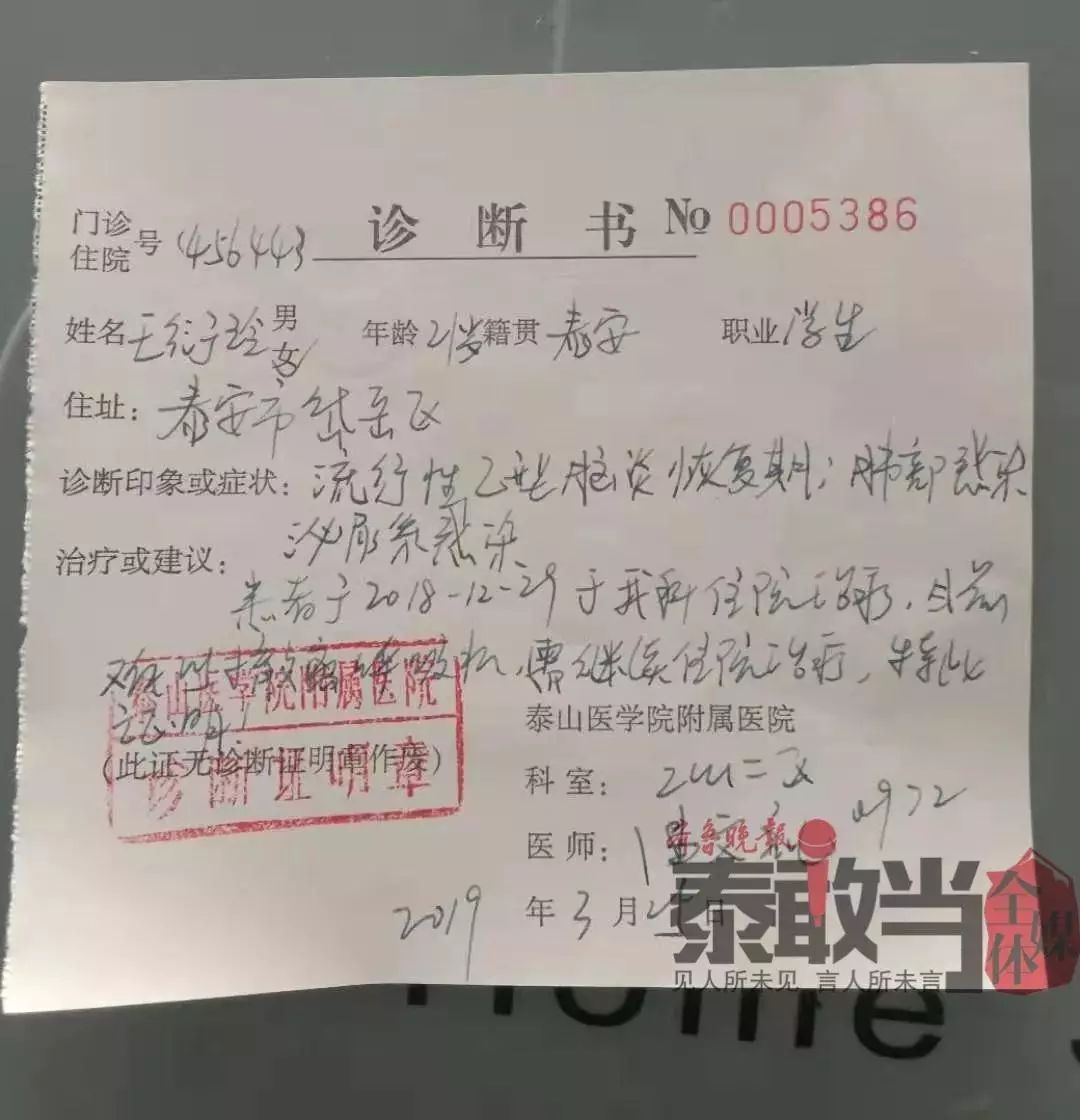 门诊
住院 号 456443 诊 断 书 № 0005386
姓名 王衍玲 男 女 年龄 21岁 籍贯 泰安 职业 学生
住址: 泰安市岱岳区
诊断印象或症状: 流行性乙型脑炎恢复期; 肺部感染
泌尿系感染
治疗或建议:
患者于2018-12-29于我科住院治疗, 目前
难以撤离呼吸机, 需继续住院治疗, 特此
证明!
泰山医学院附属医院
诊断证明章
泰山医学院附属医院
(此证无诊断证明章作废)
科 室: ICU二区
医 师: 0972
2019 年 3 月 25 日
齐鲁晚报
泰敢当
全媒体
见人所未见 言人所未言
Home